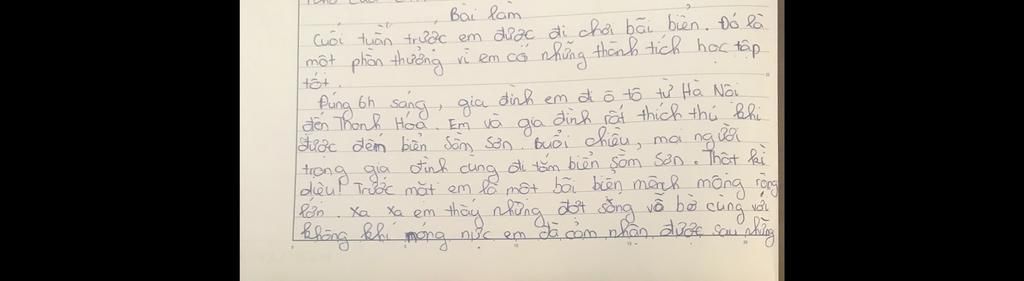 Bài làm
Cuối tuần trước em được đi chơi bãi biển. Đó là
một phần thưởng vì em có những thành tích học tập
tốt.
Đúng 6h sáng, gia đình em đi ô tô từ Hà Nội
đến Thanh Hóa. Em và gia đình rất thích thú khi
được đến biển Sầm Sơn. Buổi chiều, mọi người
trong gia đình cùng đi tắm biển Sầm Sơn. Thật kì
diệu! Trước mặt em là một bãi biển mênh mông rộng
lớn. Xa xa em thấy những đợt sóng vỗ bờ cùng với
không khí nóng nực em đã cảm nhận được sau những